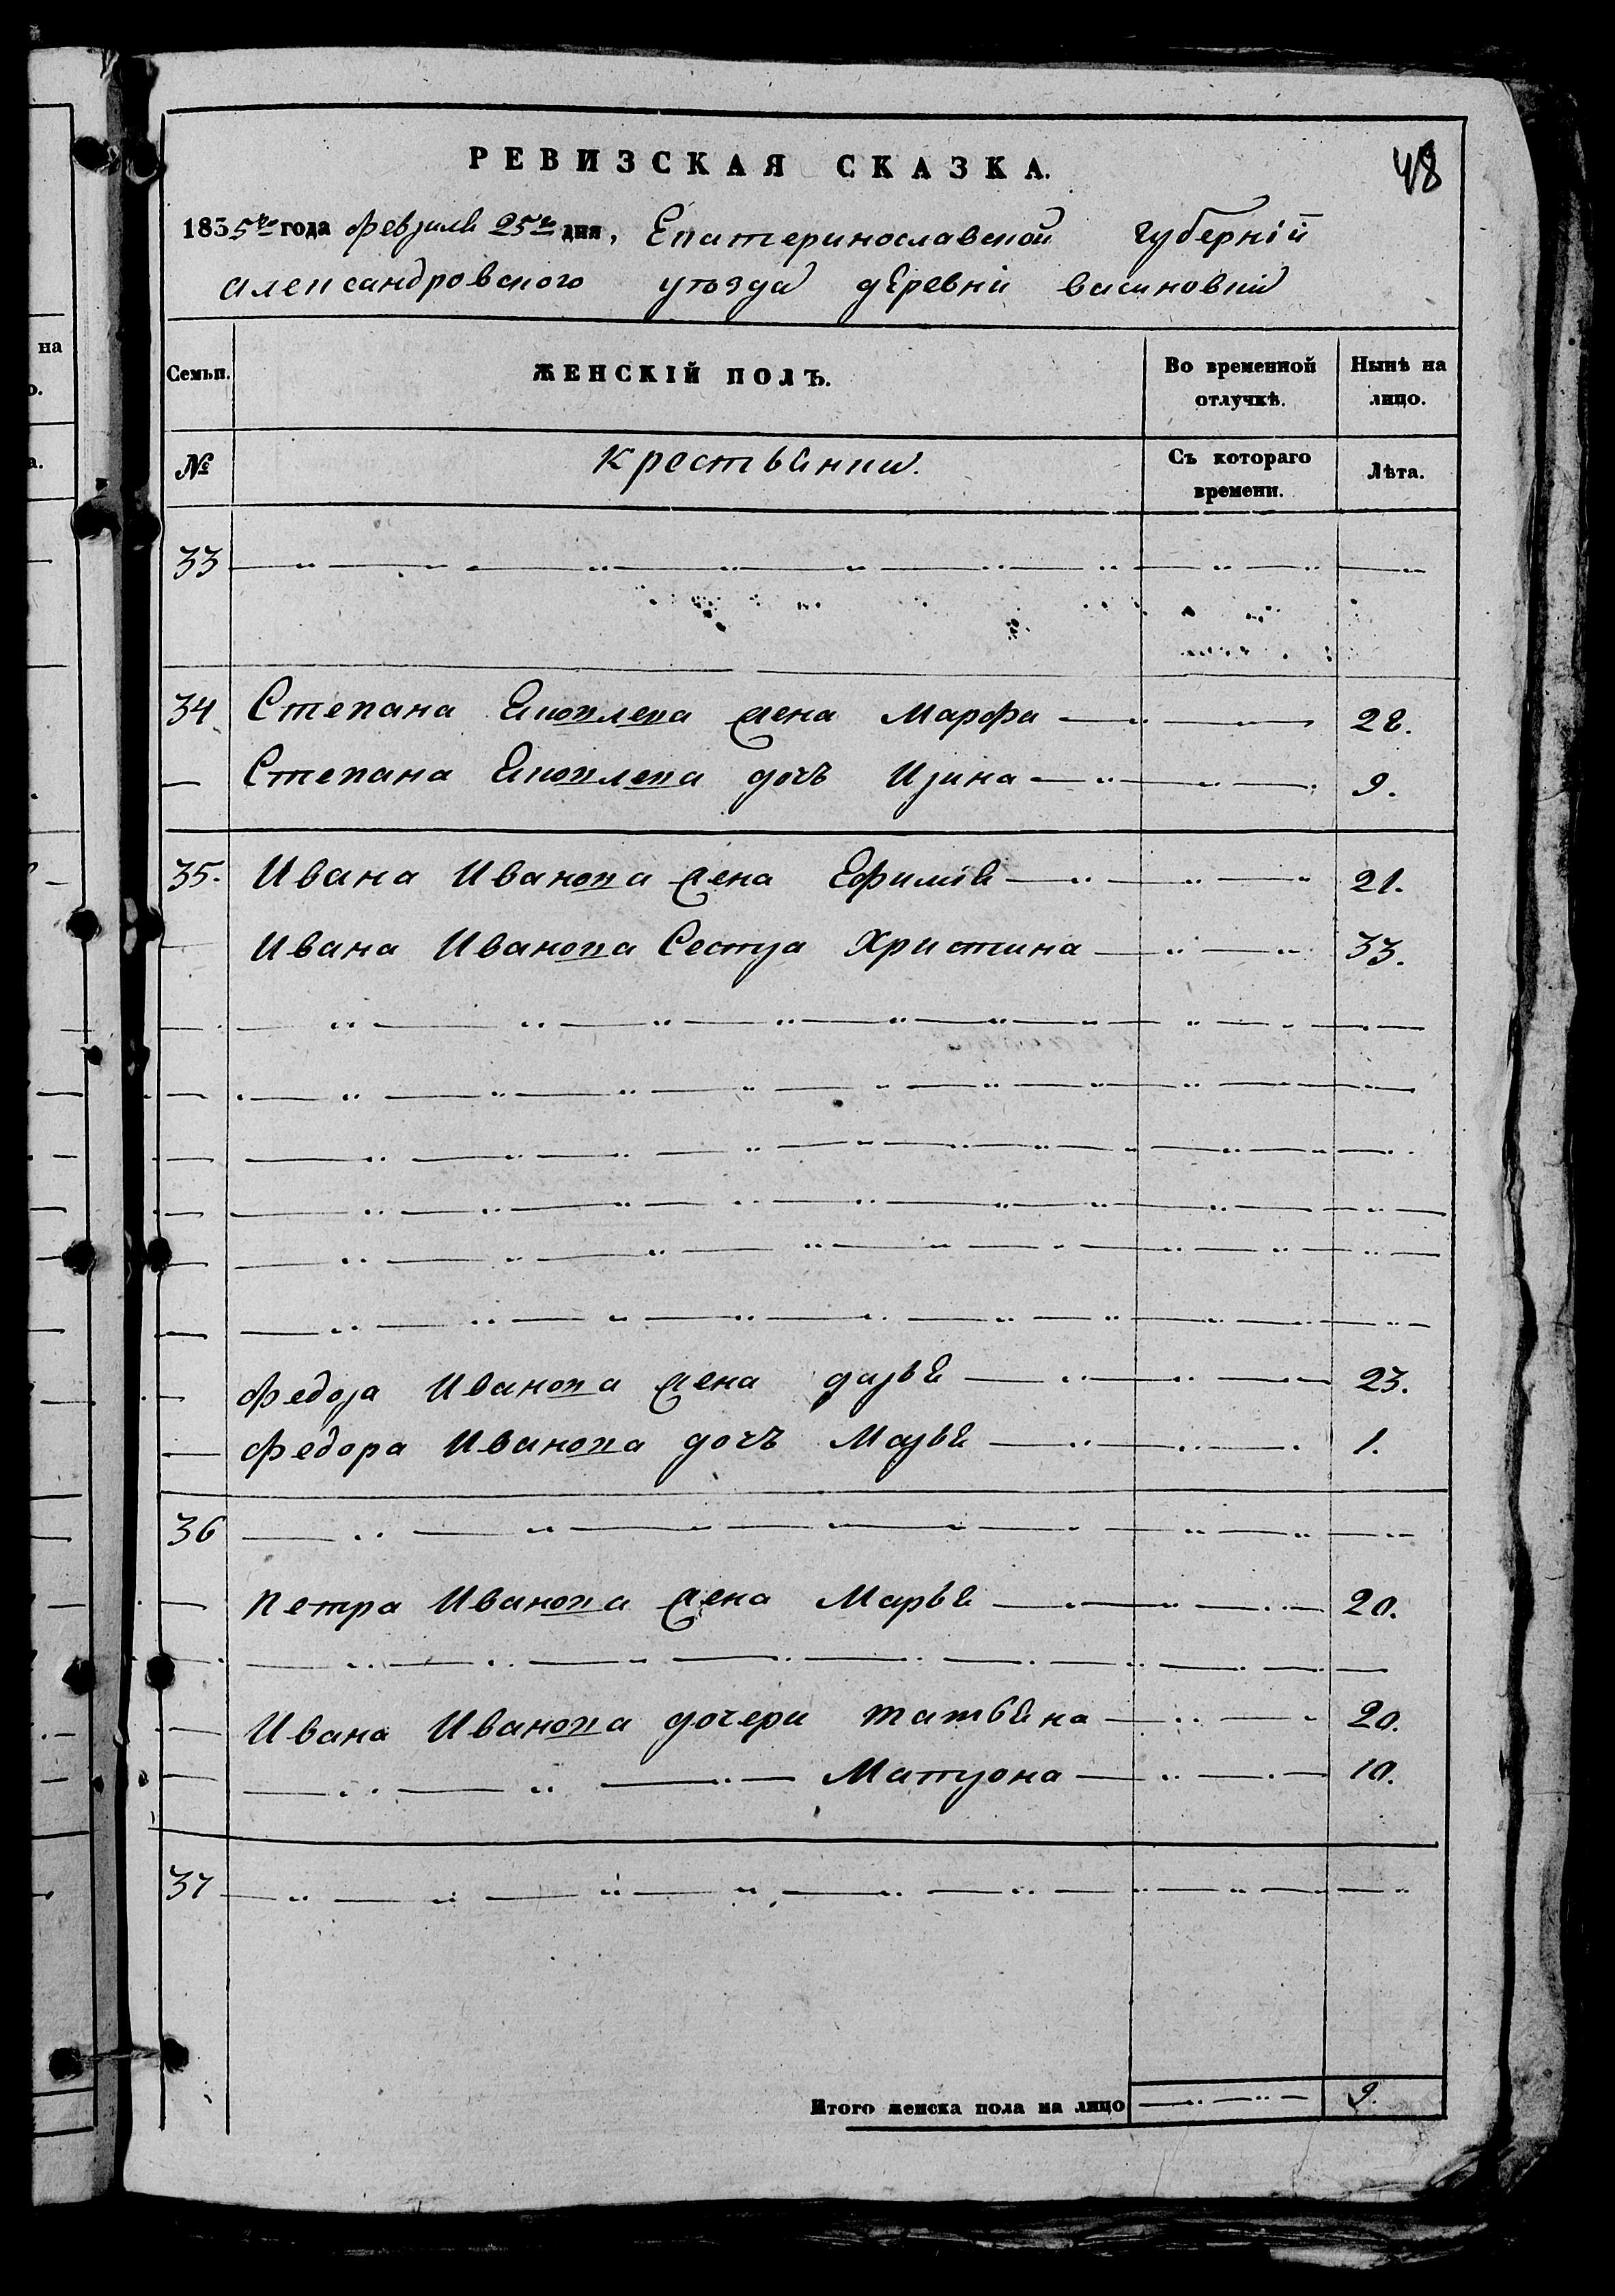 48
РЕВИЗСКАЯ СКАЗКА.
1835го года февраля 25го дня, Екатеринославской губерніи
Александровского уѣзда деревни Васиновки
на
о.
а.
Семьи. ЖЕНСКІЙ ПОЛЪ. Во временной отлучкѣ. Нынѣ на лицо.
№ Крестьянки. Съ котораго времени. Лѣта.
33
34 Степана жена Марфа 28.
Степана дочь Ирина 9.
35. Ивана Иванова жена Ефимія 21.
Ивана Иванова Сестра Христина 33.
Федора Иванова жена дарья 23.
Федора Иванова дочь Марья 1.
36
Петра Иванова жена Марья 20.
Ивана Иванова дочери татьяна 20.
Матрона 10.
37
Итого женска пола на лицо 9.